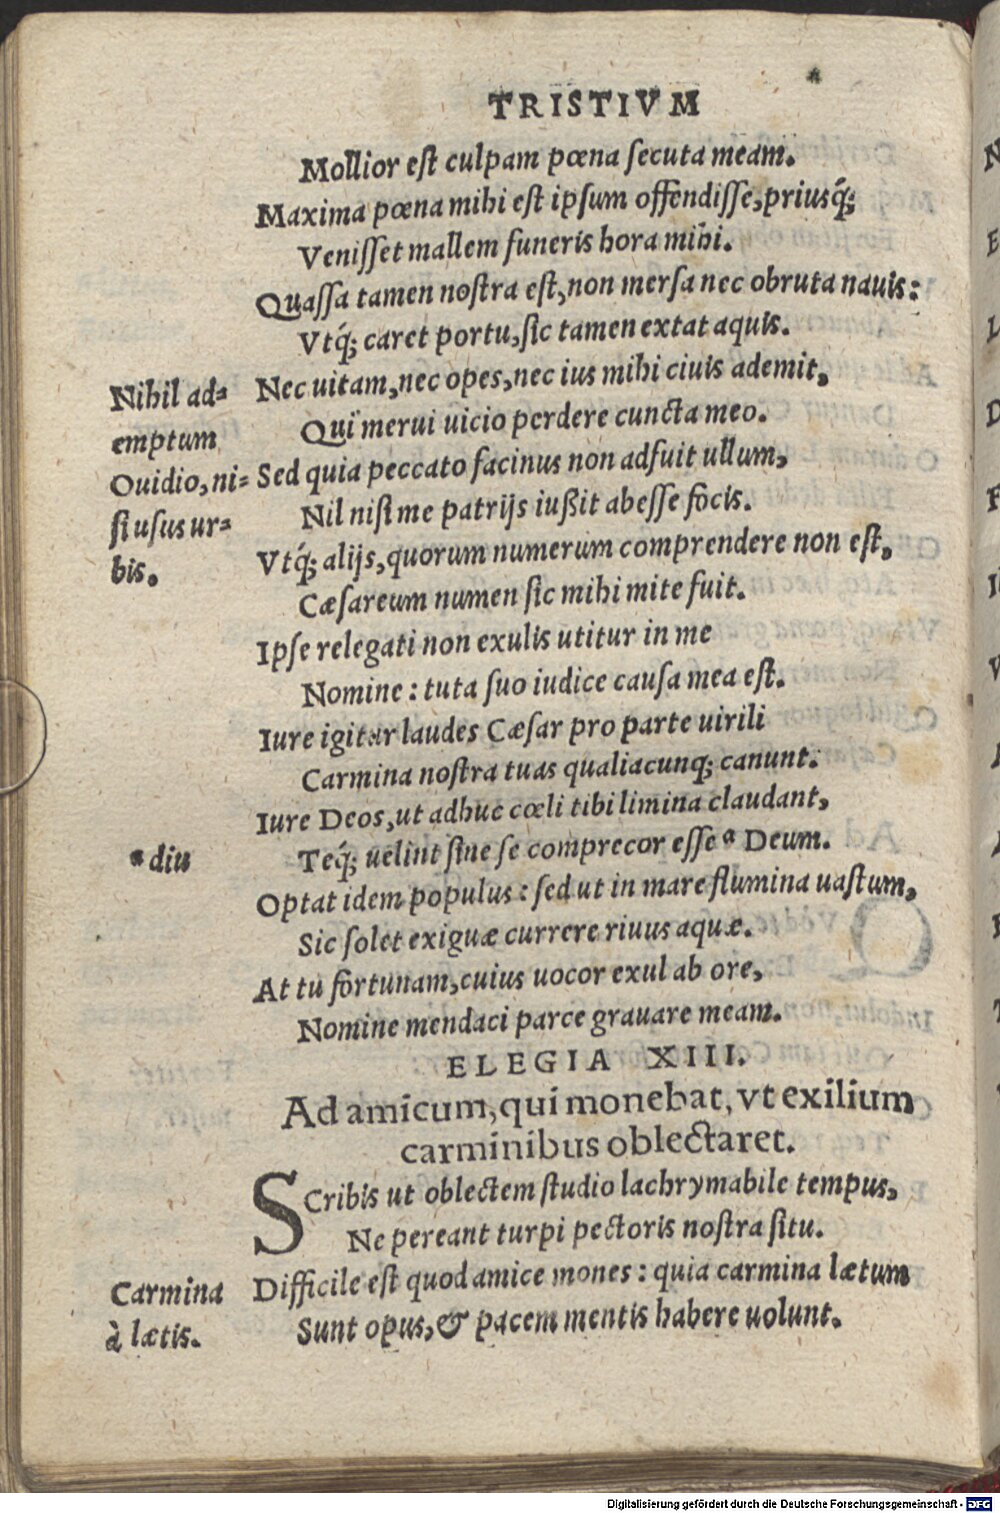 TRISTIVM
Mollior eſt culpam pœna ſecuta meam.
Maxima pœna mihi eſt ipſum offendiſſe, priusq́;
Veniſſet mallem funeris hora mihi.
Quaſſa tamen noſtra eſt, non merſa nec obruta nauis:
Vtq́; caret portu, ſic tamen extat aquis.
Nec uitam, nec opes, nec ius mihi ciuis ademit,
Qui merui uicio perdere cuncta meo.
Sed quia peccato facinus non adfuit ullum,
Nil niſi me patrijs iußit abeſſe focis.
Vtq́; alijs, quorum numerum comprendere non eſt,
Cæſareum numen ſic mihi mite fuit.
Ipſe relegati non exulis utitur in me
Nomine: tuta ſuo iudice cauſa mea eſt.
Iure igitur laudes Cæſar pro parte uirili
Carmina noſtra tuas qualiacunq; canunt.
Iure Deos, ut adhuc cœli tibi limina claudant,
Teq́; uelint ſine ſe comprecor eſſe ᵃ Deum.
Optat idem populus: ſed ut in mare flumina uaſtum,
Sic ſolet exiguæ currere riuus aquæ.
At tu fortunam, cuius uocor exul ab ore,
Nomine mendaci parce grauare meam.
Nihil ad⸗
emptum
Ouidio, ni⸗
ſi uſus ur⸗
bis.
ᵃ diu
ELEGIA XIII.
Ad amicum, qui monebat, vt exilium
carminibus oblectaret.
SCribis ut oblectem ſtudio lachrymabile tempus,
Ne pereant turpi pectoris noſtra ſitu.
Difficile eſt quod amice mones: quia carmina lætum
Sunt opus, & pacem mentis habere uolunt.
Carmina
à lætis.
Digitalisierung gefördert durch die Deutsche Forschungsgemeinschaft - DFG